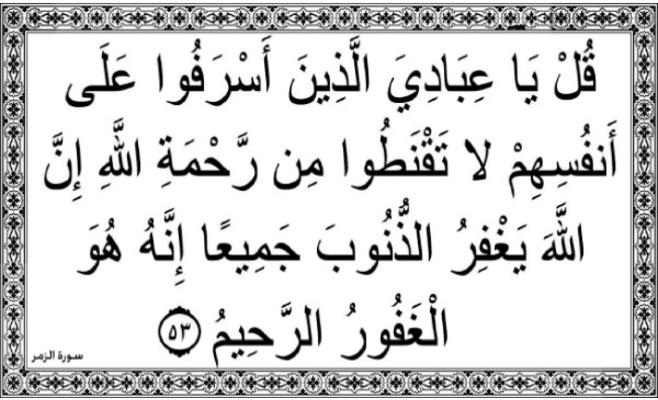 قُلْ يَا عِبَادِيَ الَّذِينَ أَسْرَفُوا عَلَى
أَنفُسِهِمْ لا تَقْنَطُوا مِن رَّحْمَةِ اللَّهِ إِنَّ
اللَّهَ يَغْفِرُ الذُّنُوبَ جَمِيعًا إِنَّهُ هُوَ
الْغَفُورُ الرَّحِيمُ ۝٥٣
سورة الزمر